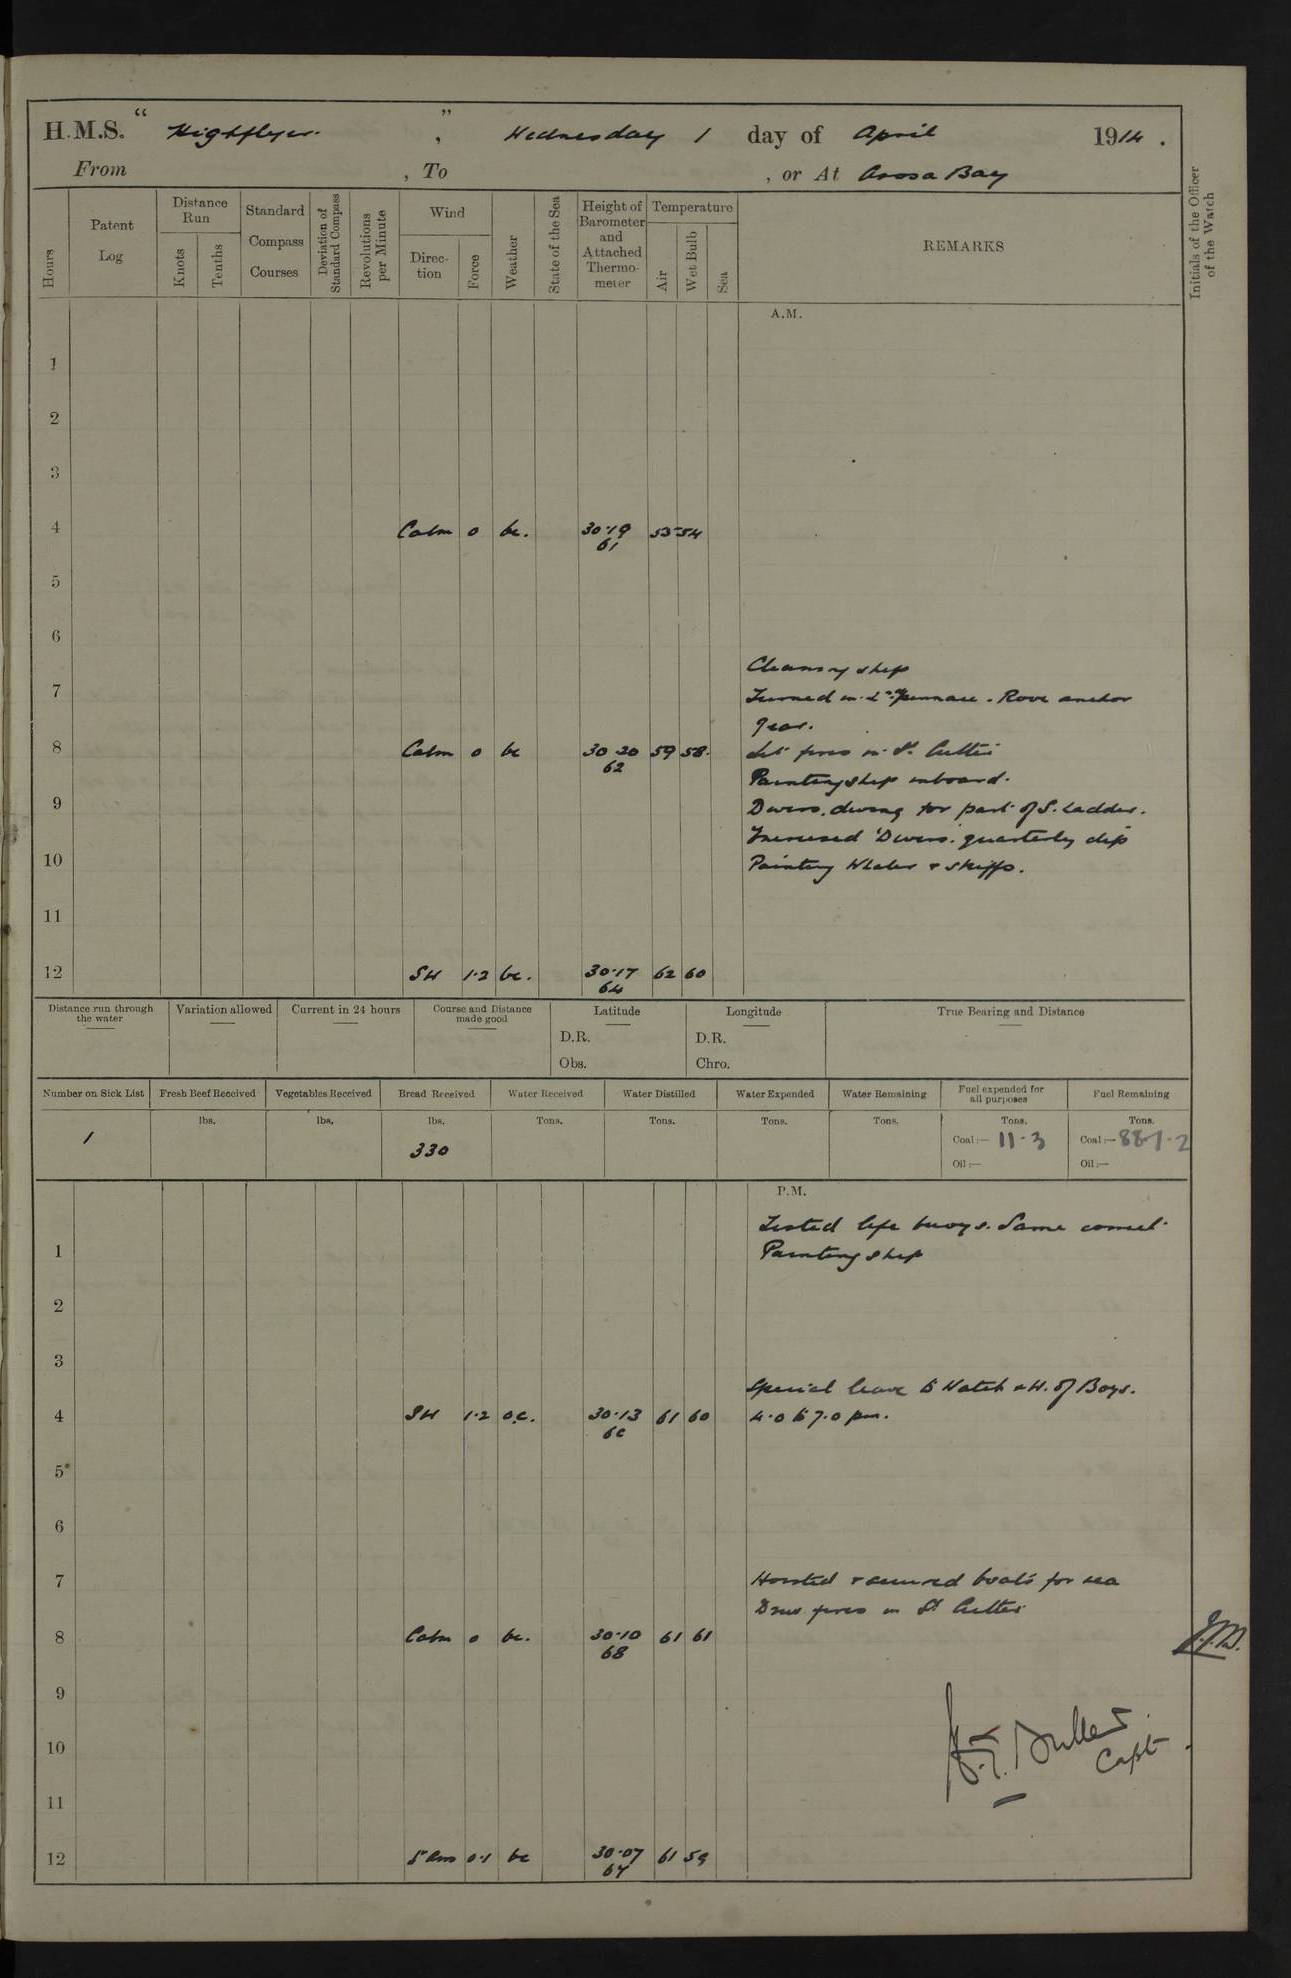 H.M.S. “ Highflyer. ” , Wednesday 1 day of April 1914 .
From , To , or At Arosa Bay
Hours
Patent Log
Distance Run
Knots
Tenths
Standard Compass Courses
Deviation of Standard Compass
Revolutions per Minute
Wind
Direction
Force
Weather
State of the Sea
Height of Barometer and Attached Thermometer
Temperature
Air
Wet Bulb
Sea
REMARKS
Initials of the Officer of the Watch
A.M.
1
2
3
4 Calm 0 bc. 30·19 55 54
61
5
6
Cleaning ship
7 Turned in Pinnace. Rove anchor
gear.
8 Calm 0 bc 30 20 59 58.
62
Lit fires in St. Cutter
Painting ship inboard.
9 Divers, diving for part of S. Ladder.
Divers quarterly dip
10 Painting Whaler & Skiffs.
11
12 SW 1·2 bc. 30·17 62 60
64
Distance run through the water
Variation allowed
Current in 24 hours
Course and Distance made good
Latitude
D.R.
Obs.
Longitude
D.R.
Chro.
True Bearing and Distance
Number on Sick List
Fresh Beef Received
Vegetables Received
Bread Received
Water Received
Water Distilled
Water Expended
Water Remaining
Fuel expended for all purposes
Fuel Remaining
1
lbs.
lbs.
lbs.
330
Tons.
Tons.
Tons.
Tons.
Tons.
Coal:— 11·3
Oil:—
Tons.
Coal:— 
Oil:—
P.M.
Tested life buoys. Same correct.
1 Painting ship
2
3
Special leave to Watch & W. of Boys.
4 SW 1·2 o.c. 30·13 61 60 4·0 to 7·0 pm.
5
6
7 Hoisted & secured boats for sea
Drew fires in St Cutter
8 Calm 0 bc. 30·10 61 61
68
9
10 H.T. Buller
Capt
11
12 0·1 bc 30·07 61 59